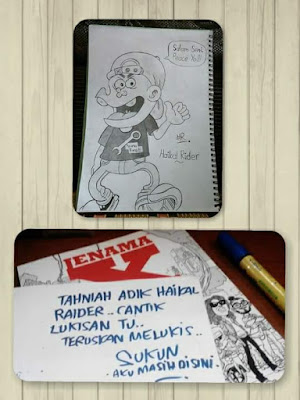 HR.
Haikal Rider
JENAMA
TAHNIAH ADIK HAIKAL
RAIDER.. CANTIK
LUKISAN TU..
TERUSKAN MELUKIS..
SUKUN
AKU MASIH DISINI.